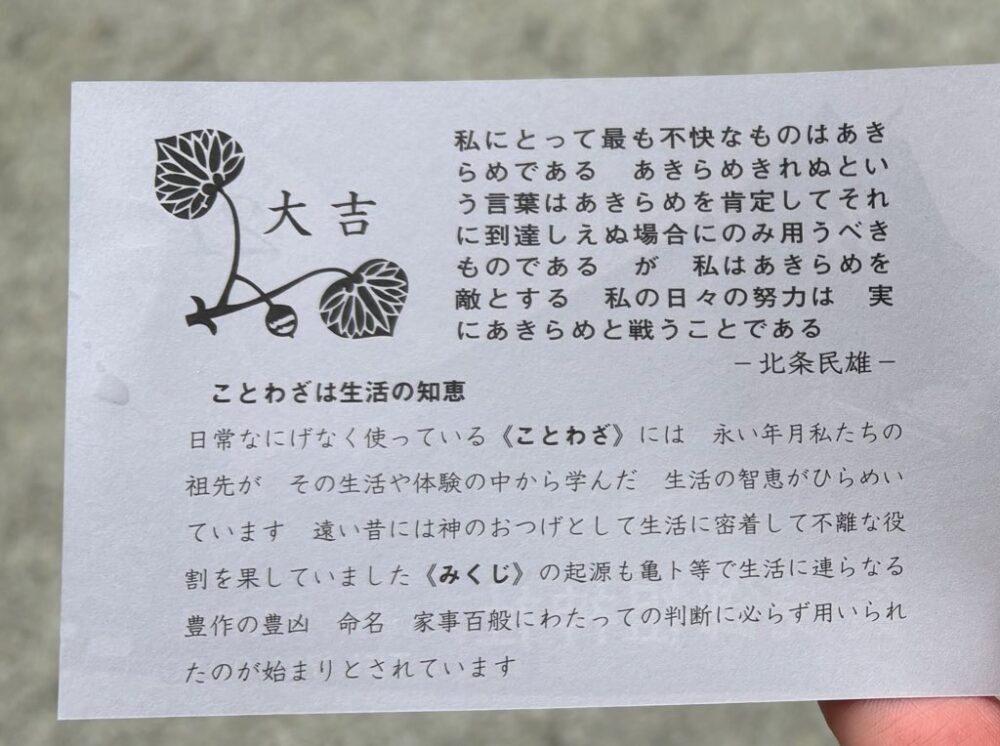 大吉
私にとって最も不快なものはあき
らめである　あきらめきれぬとい
う言葉はあきらめを肯定してそれ
に到達しえぬ場合にのみ用うべき
ものである　が　私はあきらめを
敵とする　私の日々の努力は　実
にあきらめと戦うことである
－北条民雄－
ことわざは生活の知恵
日常なにげなく使っている《ことわざ》には　永い年月私たちの
祖先が　その生活や体験の中から学んだ　生活の智恵がひらめい
ています　遠い昔には神のおつげとして生活に密着して不離な役
割を果していました《みくじ》の起源も亀卜等で生活に連らなる
豊作の豊凶　命名　家事百般にわたっての判断に必らず用いられ
たのが始まりとされています